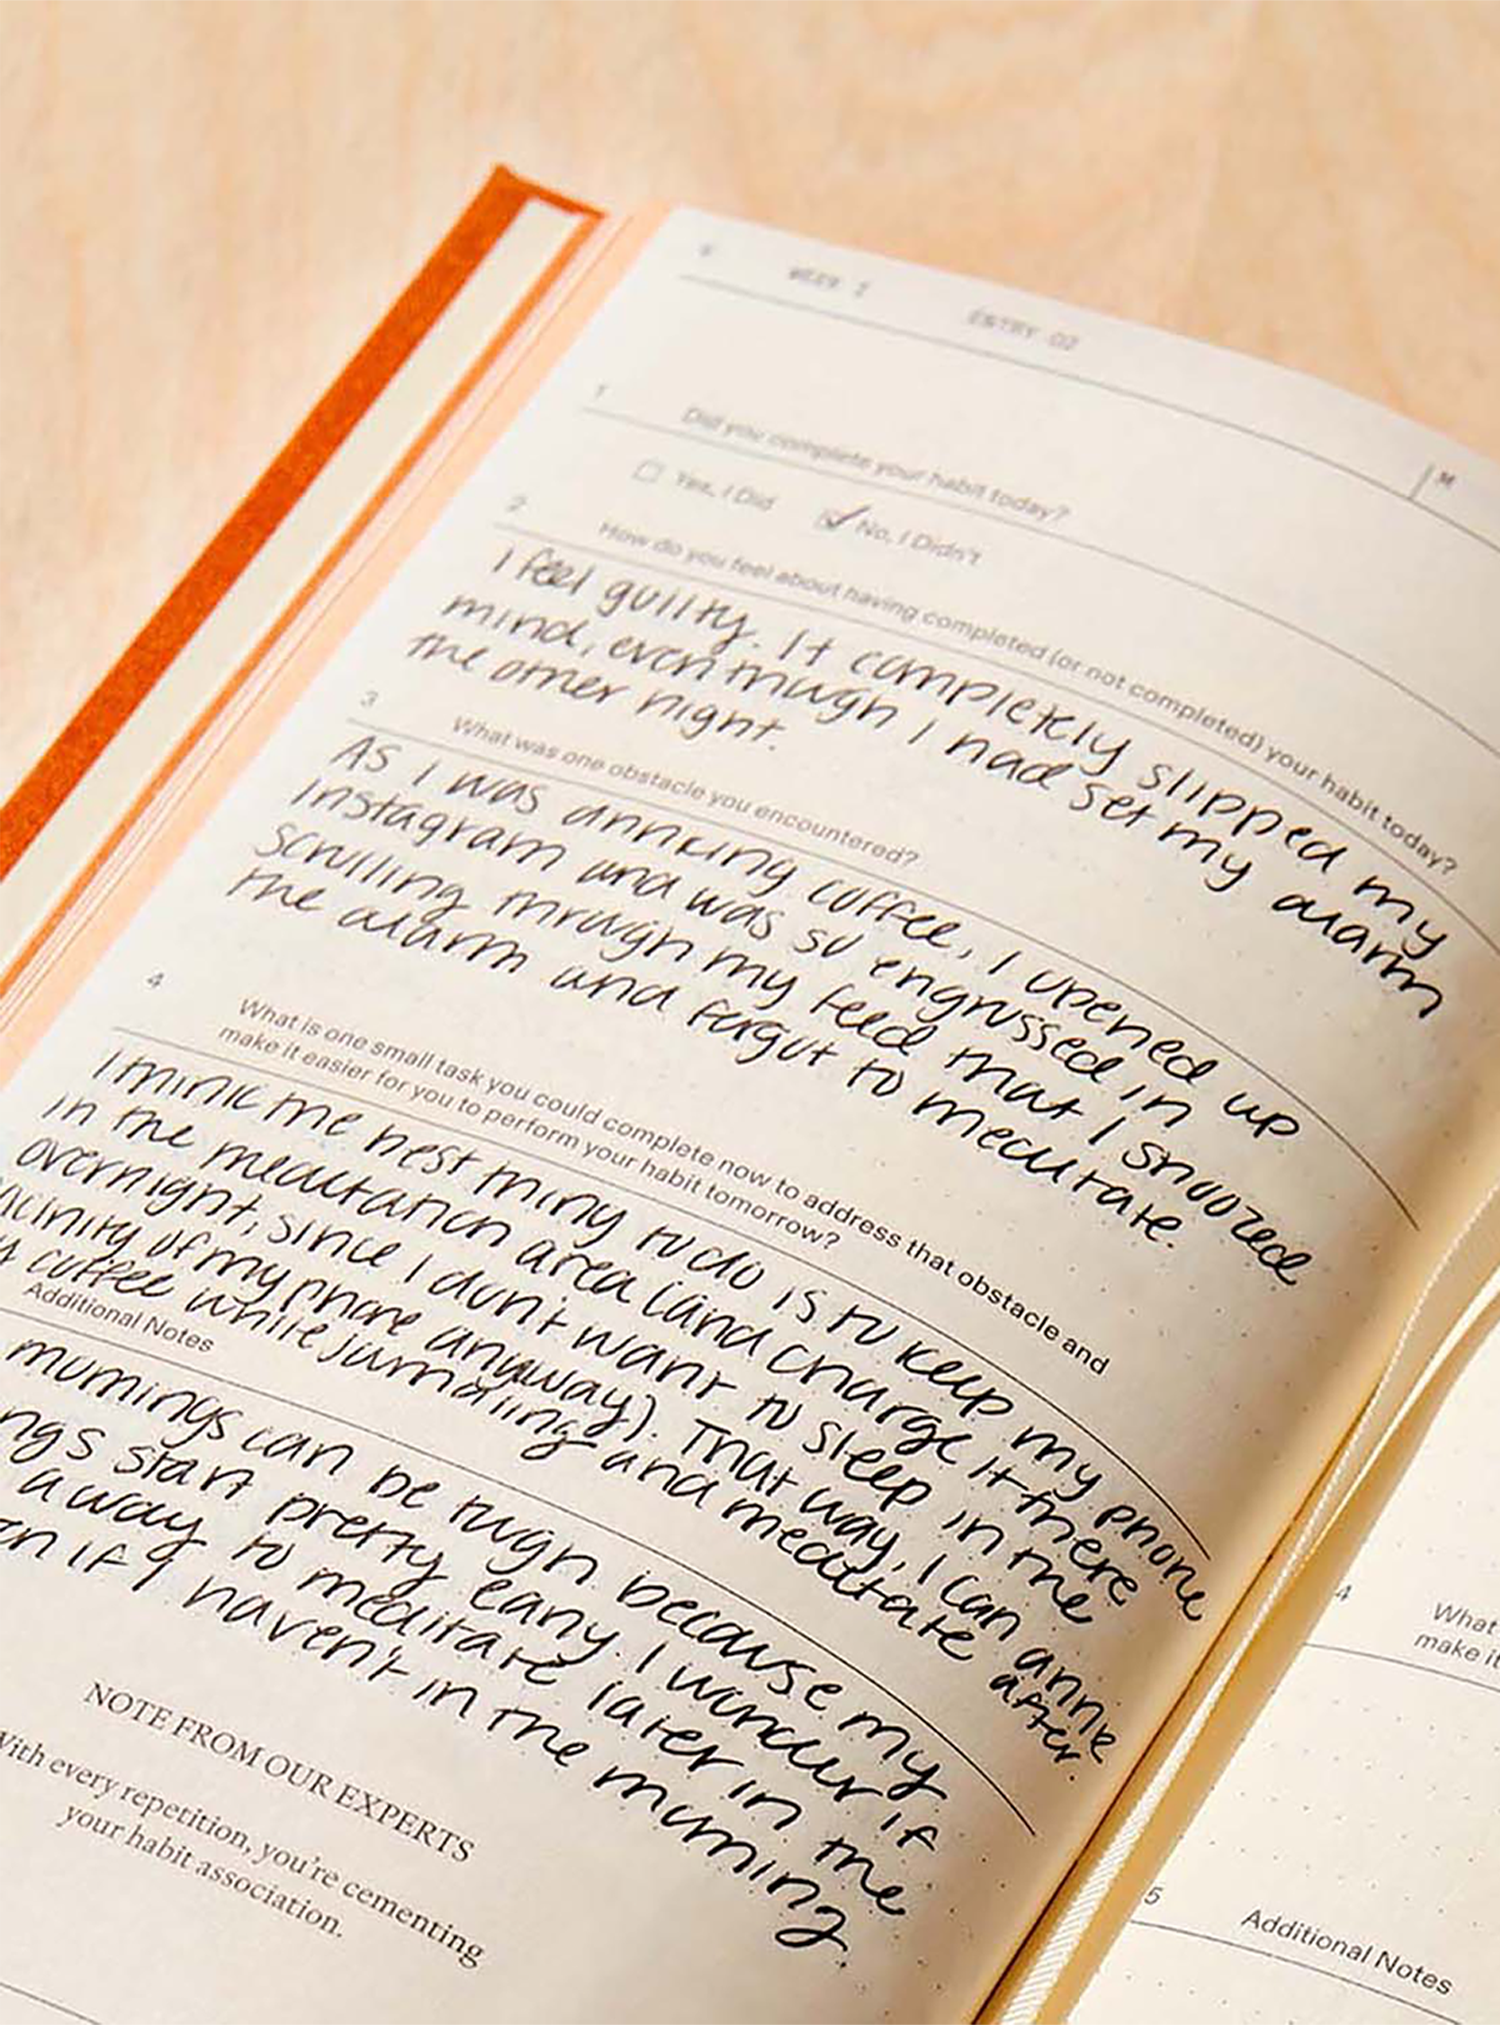 WEEK 2
ENTRY 02
M
1
Did you complete your habit today?
Yes, I Did
No, I Didn't
2
How do you feel about having completed (or not completed) your habit today?
I feel guilty. It completely slipped my
mind, even though I had set my alarm
the other night.
3
What was one obstacle you encountered?
As I was drinking coffee, I opened up
Instagram and was so engrossed in
scrolling through my feed that I snoozed
the alarm and forgot to meditate.
4
What is one small task you could complete now to address that obstacle and
make it easier for you to perform your habit tomorrow?
I think the best thing to do is to keep my phone
in the meditation area (and charge it there
overnight, since I don't want to sleep in the
vicinity of my phone anyway). That way, I can drink
coffee while journaling and meditate after.
Additional Notes
mornings can be tough because my
start pretty early. I wonder if
away to meditate later in the
if I haven't in the morning.
NOTE FROM OUR EXPERTS
With every repetition, you're cementing
your habit association.
4
What
make it
5
Additional Notes